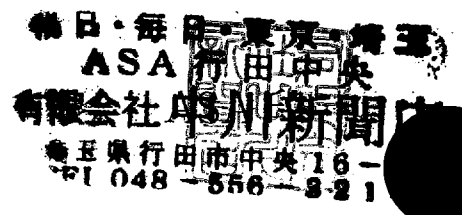 朝日・毎日・東京・埼玉
ASA行田中央
有限会社 川新聞
埼玉県行田市中央16-
048-556-221